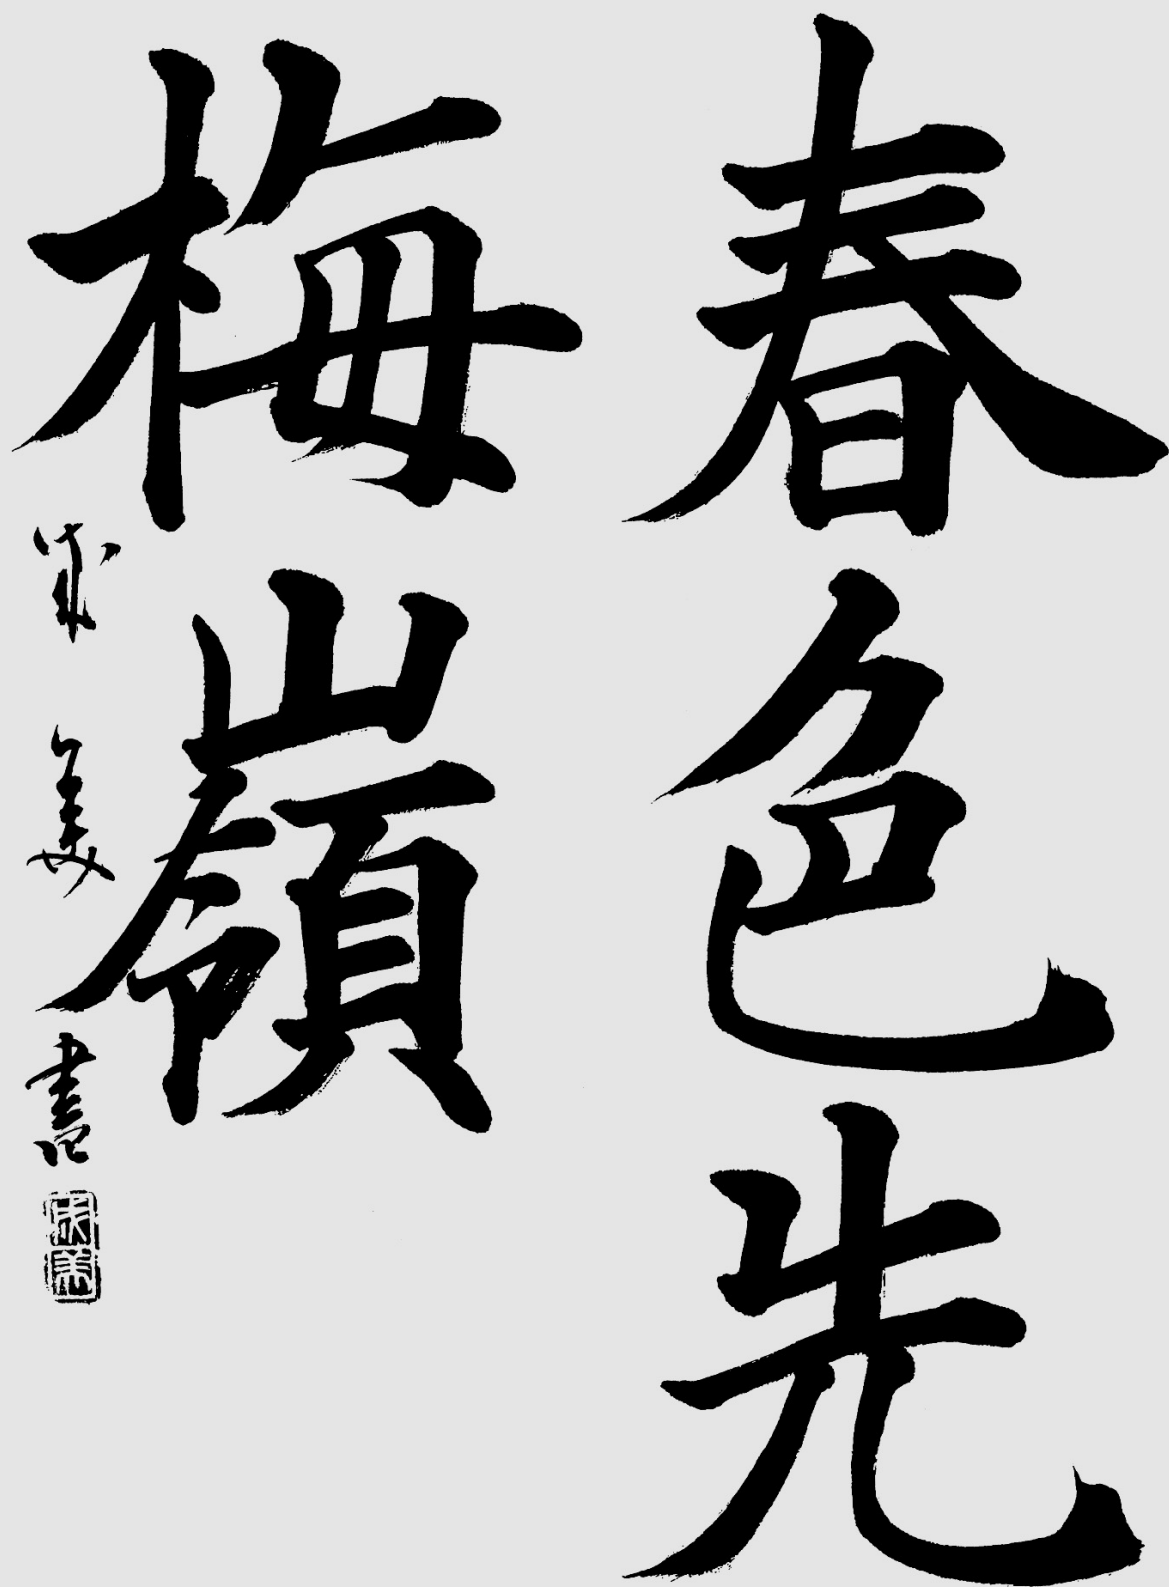 春色先
梅嶺
成美書
成美